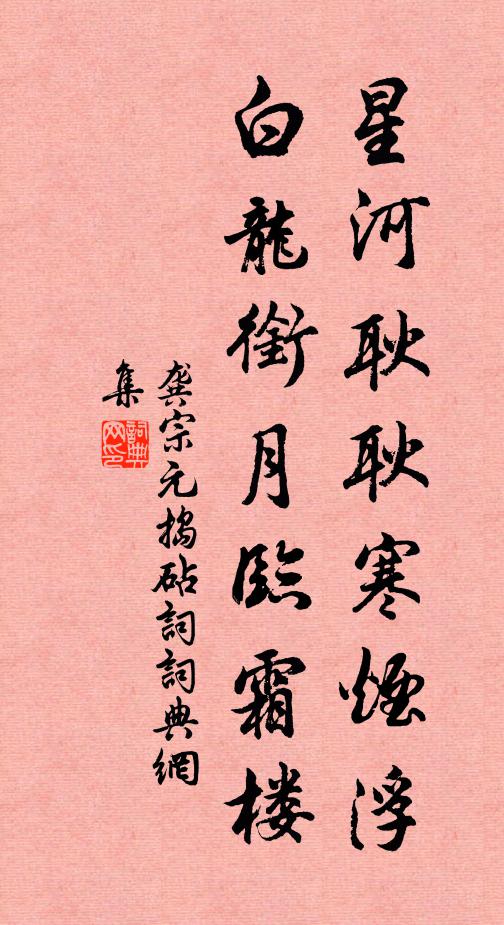 星河耿耿寒煙浮
白龍銜月臨霜楼
龚宗元搗砧詞詞典網
集
詞典网印